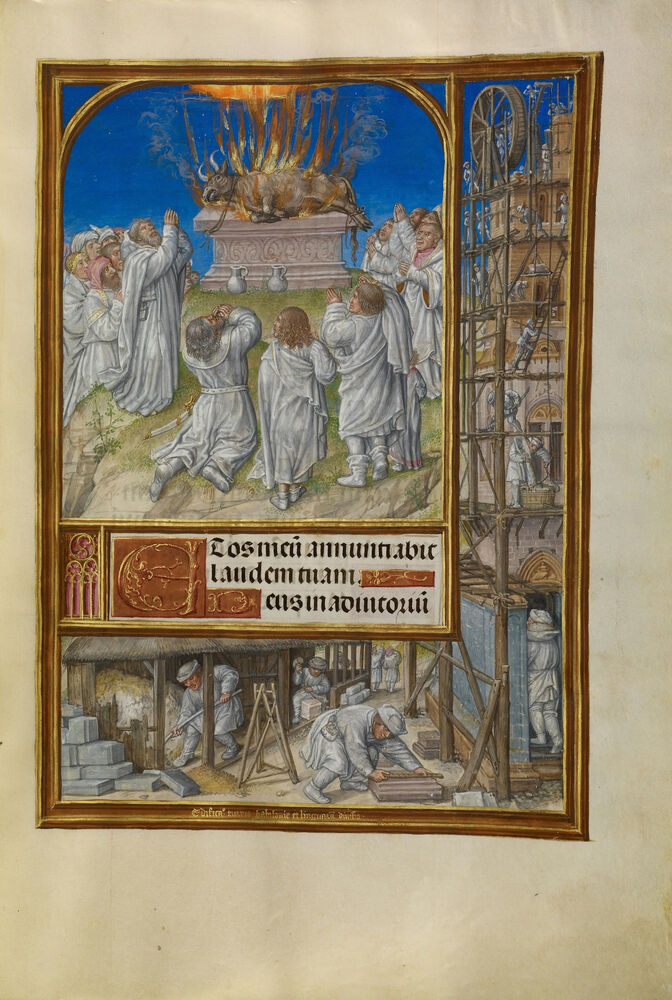 Et os meū annuntiabit
laudem tuam.
Deus in adiutoriū
Edificaᵗ turris babilonie et linguarū diuisio.